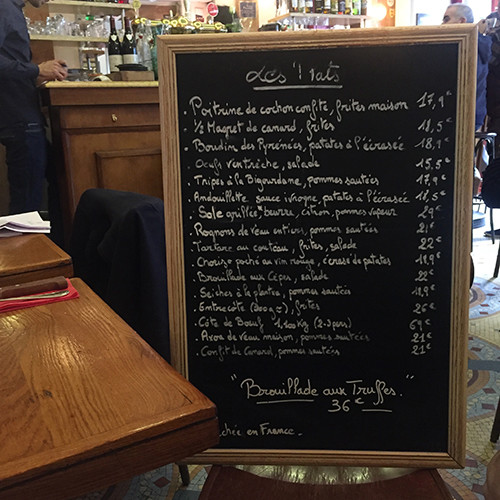 Les Plats
. Poitrine de cochon confite, frites maison 17,9€
. ½ Magret de canard, frites 18,5€
. Boudin des Pyrénées, patates à l'écrasée 18,9€
. Oeufs Ventrèche, salade 15,5€
. Tripes à la Bigourdane, pommes sautées 17,9€
. Andouillette sauce ivrogne, patates à l'écrasée 18,5€
. Sole grillée, beurre, citron, pommes vapeur 29€
. Rognons de Veau entiers, pommes sautées 21€
. Tartare au couteau, frites, salade 22€
. Chorizo poché au vin rouge, écrasé de patates 18,9€
. Brouillade aux Cèpes, salade 22€
. Seiches à la plancha, pommes sautées 18,9€
. Entrecôte (300gr), frites 26€
. Côte de Boeuf 1,100Kg (2-3 pers) 69€
. Axoa de Veau maison, pommes sautées 21€
. Confit de Canard, pommes sautées 21€
"Brouillade aux Truffes."
36€
chée en France